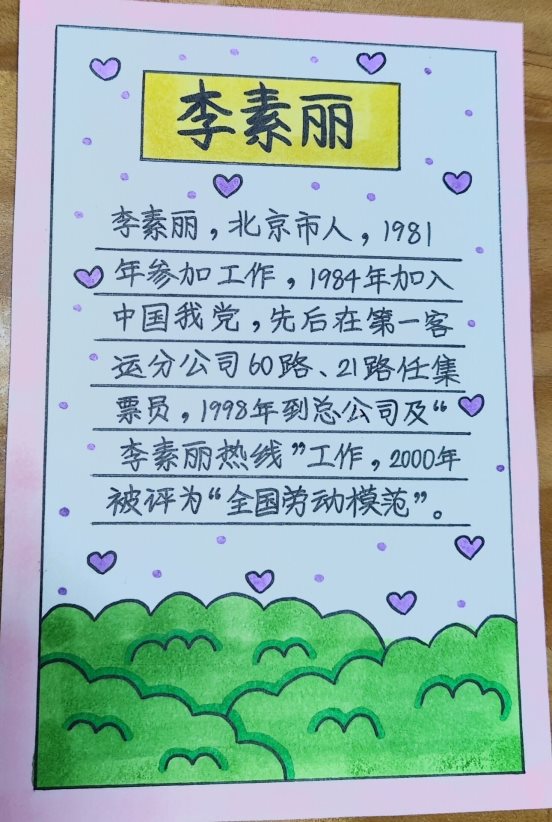 李素丽
李素丽，北京市人，1981
年参加工作，1984年加入
中国我党，先后在第一客
运分公司60路、21路任集
票员，1998年到总公司及“
李素丽热线”工作，2000年
被评为“全国劳动模范”。